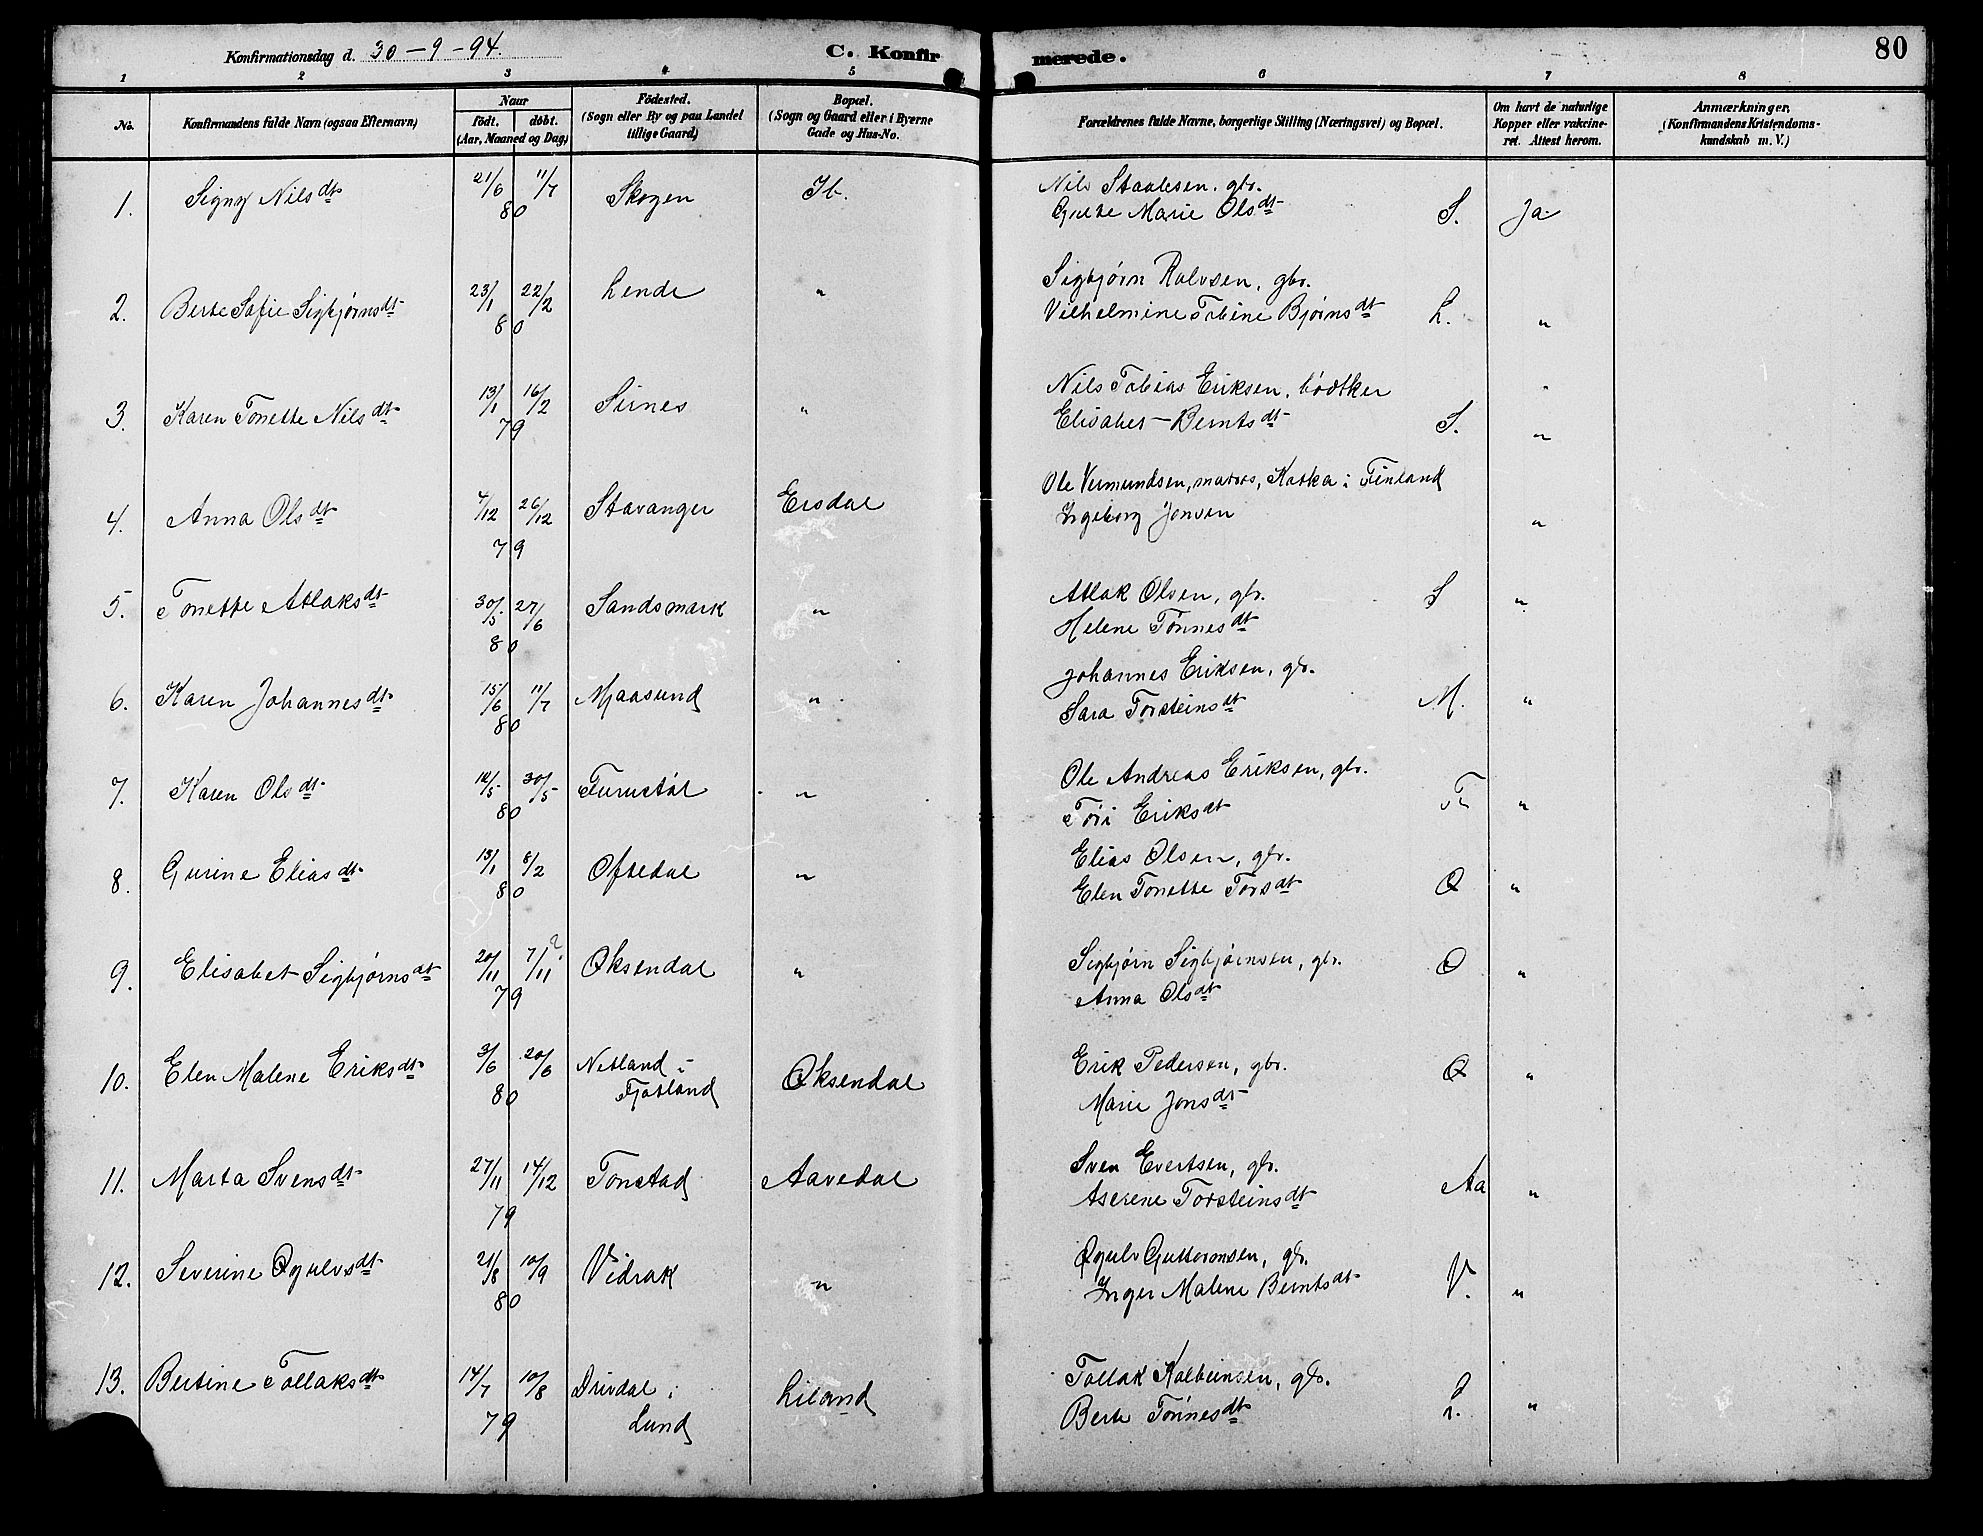 Konfirmationsdag d. 30-9-94. C. Konfirmerede. 80
1 2 3 4 5 6 7 8
No. Konfirmandens fulde Navn (ogsaa Efternavn) Naar födt. döbt. (Aar, Maaned og Dag) Födested. (Sogn eller By og paa Landet tillige Gaard) Bopæl. (Sogn og Gaard eller i Byerne Gade og Hus-No. Forældrenes fulde Navne, borgerlige Stilling (Næringsvei) og Bopæl. Om havt de naturlige Kopper eller vakcineret. Attest herom. Anmærkninger, (Konfirmandens Kristendomskundskab m. V.)
1. Signy Nilsdt 21/6 11/7 80 Skogen Ib. Nils Staalesen, gbr.
Marie Olsdt S. Ja
2. Berte Sofie Sigbjørnsdt 23/1 22/2 80 Lende " Sigbjørn Rolvsen, gbr.
Vilhelmine Tobine Bjørnsdt L. "
3. Karen Tonette Nilsdt 13/1 16/2 79 Sirnes " Nils Tobias Eriksen, bødtker
Elisabet Berntsdt S. "
4. Anna Olsdt 4/12 26/12 79 Stavanger Ersdal Ole Vermundsen, matros, Kotka i Finland
Ingeborg Jonsen "
5. Tonette Atlaksdt 30/5 27/6 80 Sandsmark " Atlak Olsen, gbr. S "
Helene Tønnesdt
6. Karen Johannesdt 15/6 11/7 80 Mjaasund " Johannes Eriksen, gbr.
Sara Torsteinsdt M. "
7. Karen Olsdt 12/5 30/5 80 Furustøl " Ole Andreas Eriksen, gbr.
Tori Eriksdt F "
8. Gurine Eliasdt 13/1 8/2 80 Oftedal " Elias Olsen, gbr.
Elen Tonette Torsdt O "
9. Elisabet Sigbjørnsdt 20/11 7/11 ? 79 Øksendal " Sigbjørn Sigbjørnsen, gbr. Ø "
Anna Olsdt
10. Elen Malene Eriksdt 3/6 20/6 80 Netland i Fjotland Øksendal Erik Pedersen, gbr. Ø "
Marie Jonsdt
11. Marta Svensdt 27/11 14/12 79 Tonstad Aavedal Sven Evertsen, gbr.
Aserene Torsteinsdt Aa "
12. Severine Øgulvsdt 21/8 10/9 80 Vidrak " Øgulv Guttormsen, gbr.
Inger Malene Berntsdt V. "
13. Bertine Tollaksdt 14/7 10/8 79 Drivdal i Lund Liland Tollak Kolbeinsen, gbr.
Berte Tønnesdt L. "